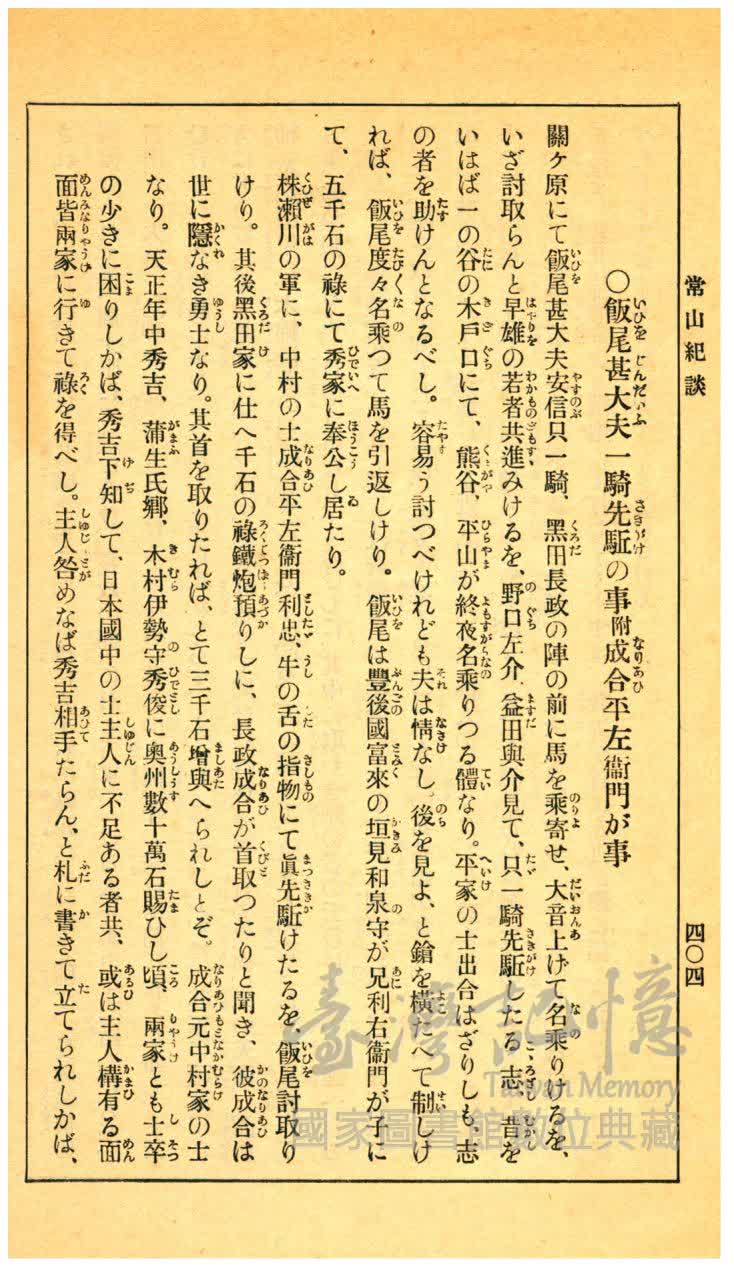 常山紀談
四〇四
〇飯尾甚大夫一騎先駈の事附成合平左衞門が事
關ヶ原にて飯尾甚大夫安信只一騎、黑田長政の陣の前に馬を乘寄せ、大音上げて名乘りけるを、
いざ討取らんと早雄の若者共進みけるを、野口左介、益田與介見て、只一騎先駈したる志、昔を
いはば一の谷の木戶口にて、熊谷、平山が終夜名乘りつる體なり。平家の士出合はざりしも、志
の者を助けんとなるべし。容易う討つべけれども夫は情なし。後を見よ、と鎗を橫たへて制しけ
れば、飯尾度々名乘つて馬を引返しけり。飯尾は豐後國富來の垣見和泉守が兄利右衞門が子に
て、五千石の祿にて秀家に奉公し居たり。
株瀨川の軍に、中村の士成合平左衞門利忠、牛の舌の指物にて眞先駈けたるを、飯尾討取り
けり。其後黑田家に仕へ千石の祿鐵炮預りしに、長政成合が首取つたりと聞き、彼成合は
世に隱なき勇士なり。其首を取りたれば、とて三千石增與へられしとぞ。成合元中村家の士
なり。天正年中秀吉、蒲生氏鄕、木村伊勢守秀俊に奧州數十萬石賜ひし頃、兩家とも士卒
の少きに困りしかば、秀吉下知して、日本國中の士主人に不足ある者共、或は主人構有る面
面皆兩家に行きて祿を得べし。主人咎めなば秀吉相手たらん、と札に書きて立てられしかば、
臺灣記憶
Taiwan Memory
國家圖書館數位典藏